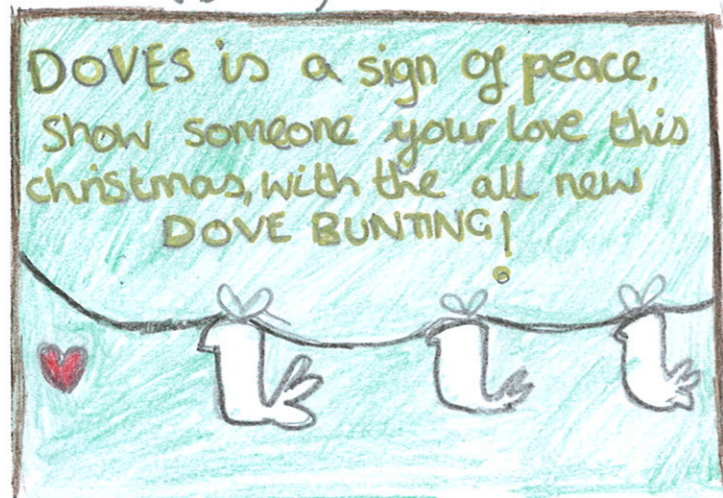 DOVES is a sign of peace,
Show someone your love this
christmas, with the all new
DOVE BUNTING!